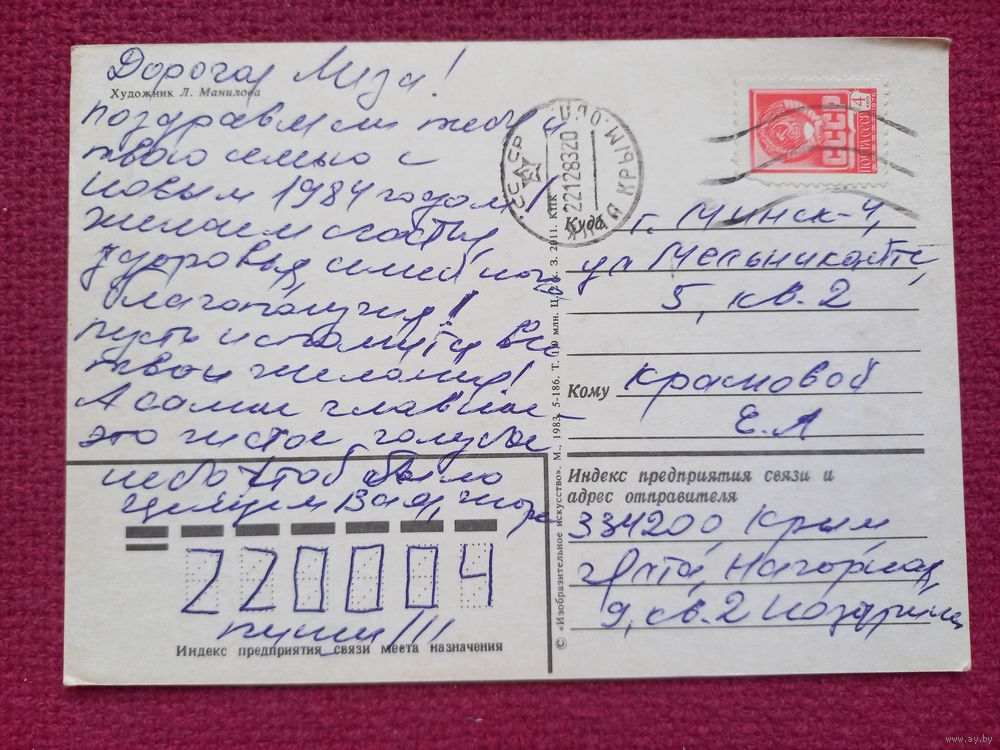 Дорогая Лиза!
Художник Л. Манилова
поздравляем тебя и
твою семью с
новым 1984 годом!
желаем счастья,
здоровья, семейного
благополучия!
пусть исполнятся все
твои желания!
А самое главное –
это чистое, голубое
небо чтоб было
целуем Вая,
220004
пиши!!!
Индекс предприятия связи места назначения
© «Изобразительное искусство». М., 1983. 5-186. Т. 1,9 млн. Ц. 2 к. З. 2011. Кпк
СССР
22128320
4
ПОЧТА СССР
1976
СССР
Куда г. Минск-4,
ул Мельникайте,
5, кв. 2
Кому Красновой
Е. А
Индекс предприятия связи и
адрес отправителя
334200, Крым
г Ялта, Нагорная,
9, кв. 2
www.ay.by